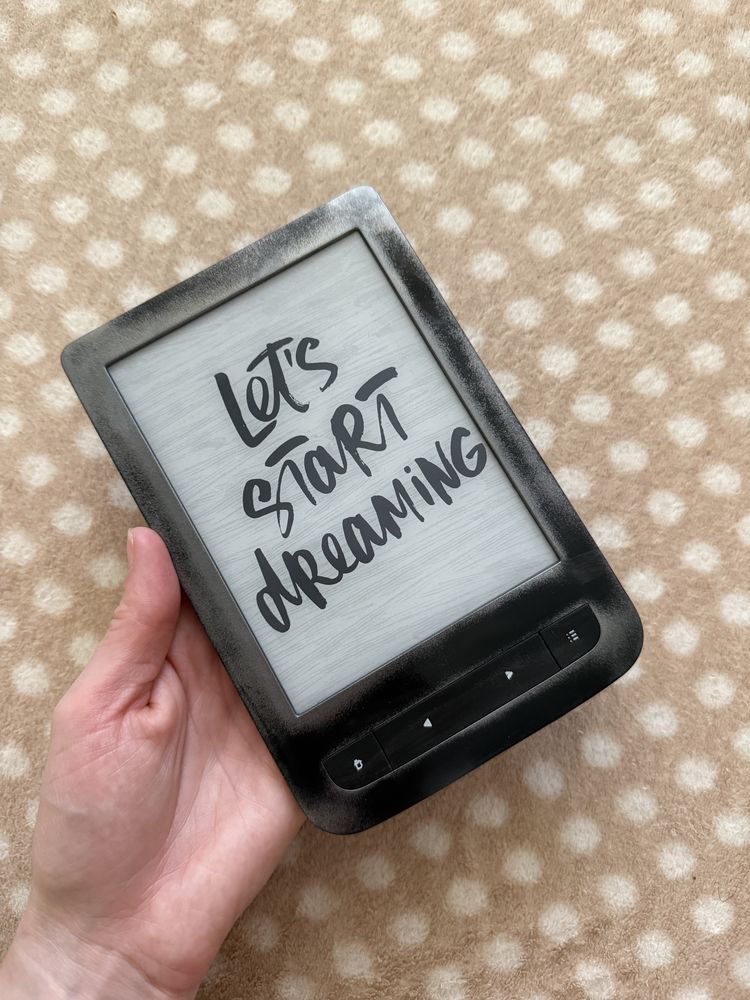 Let's
START
dreAMiNG